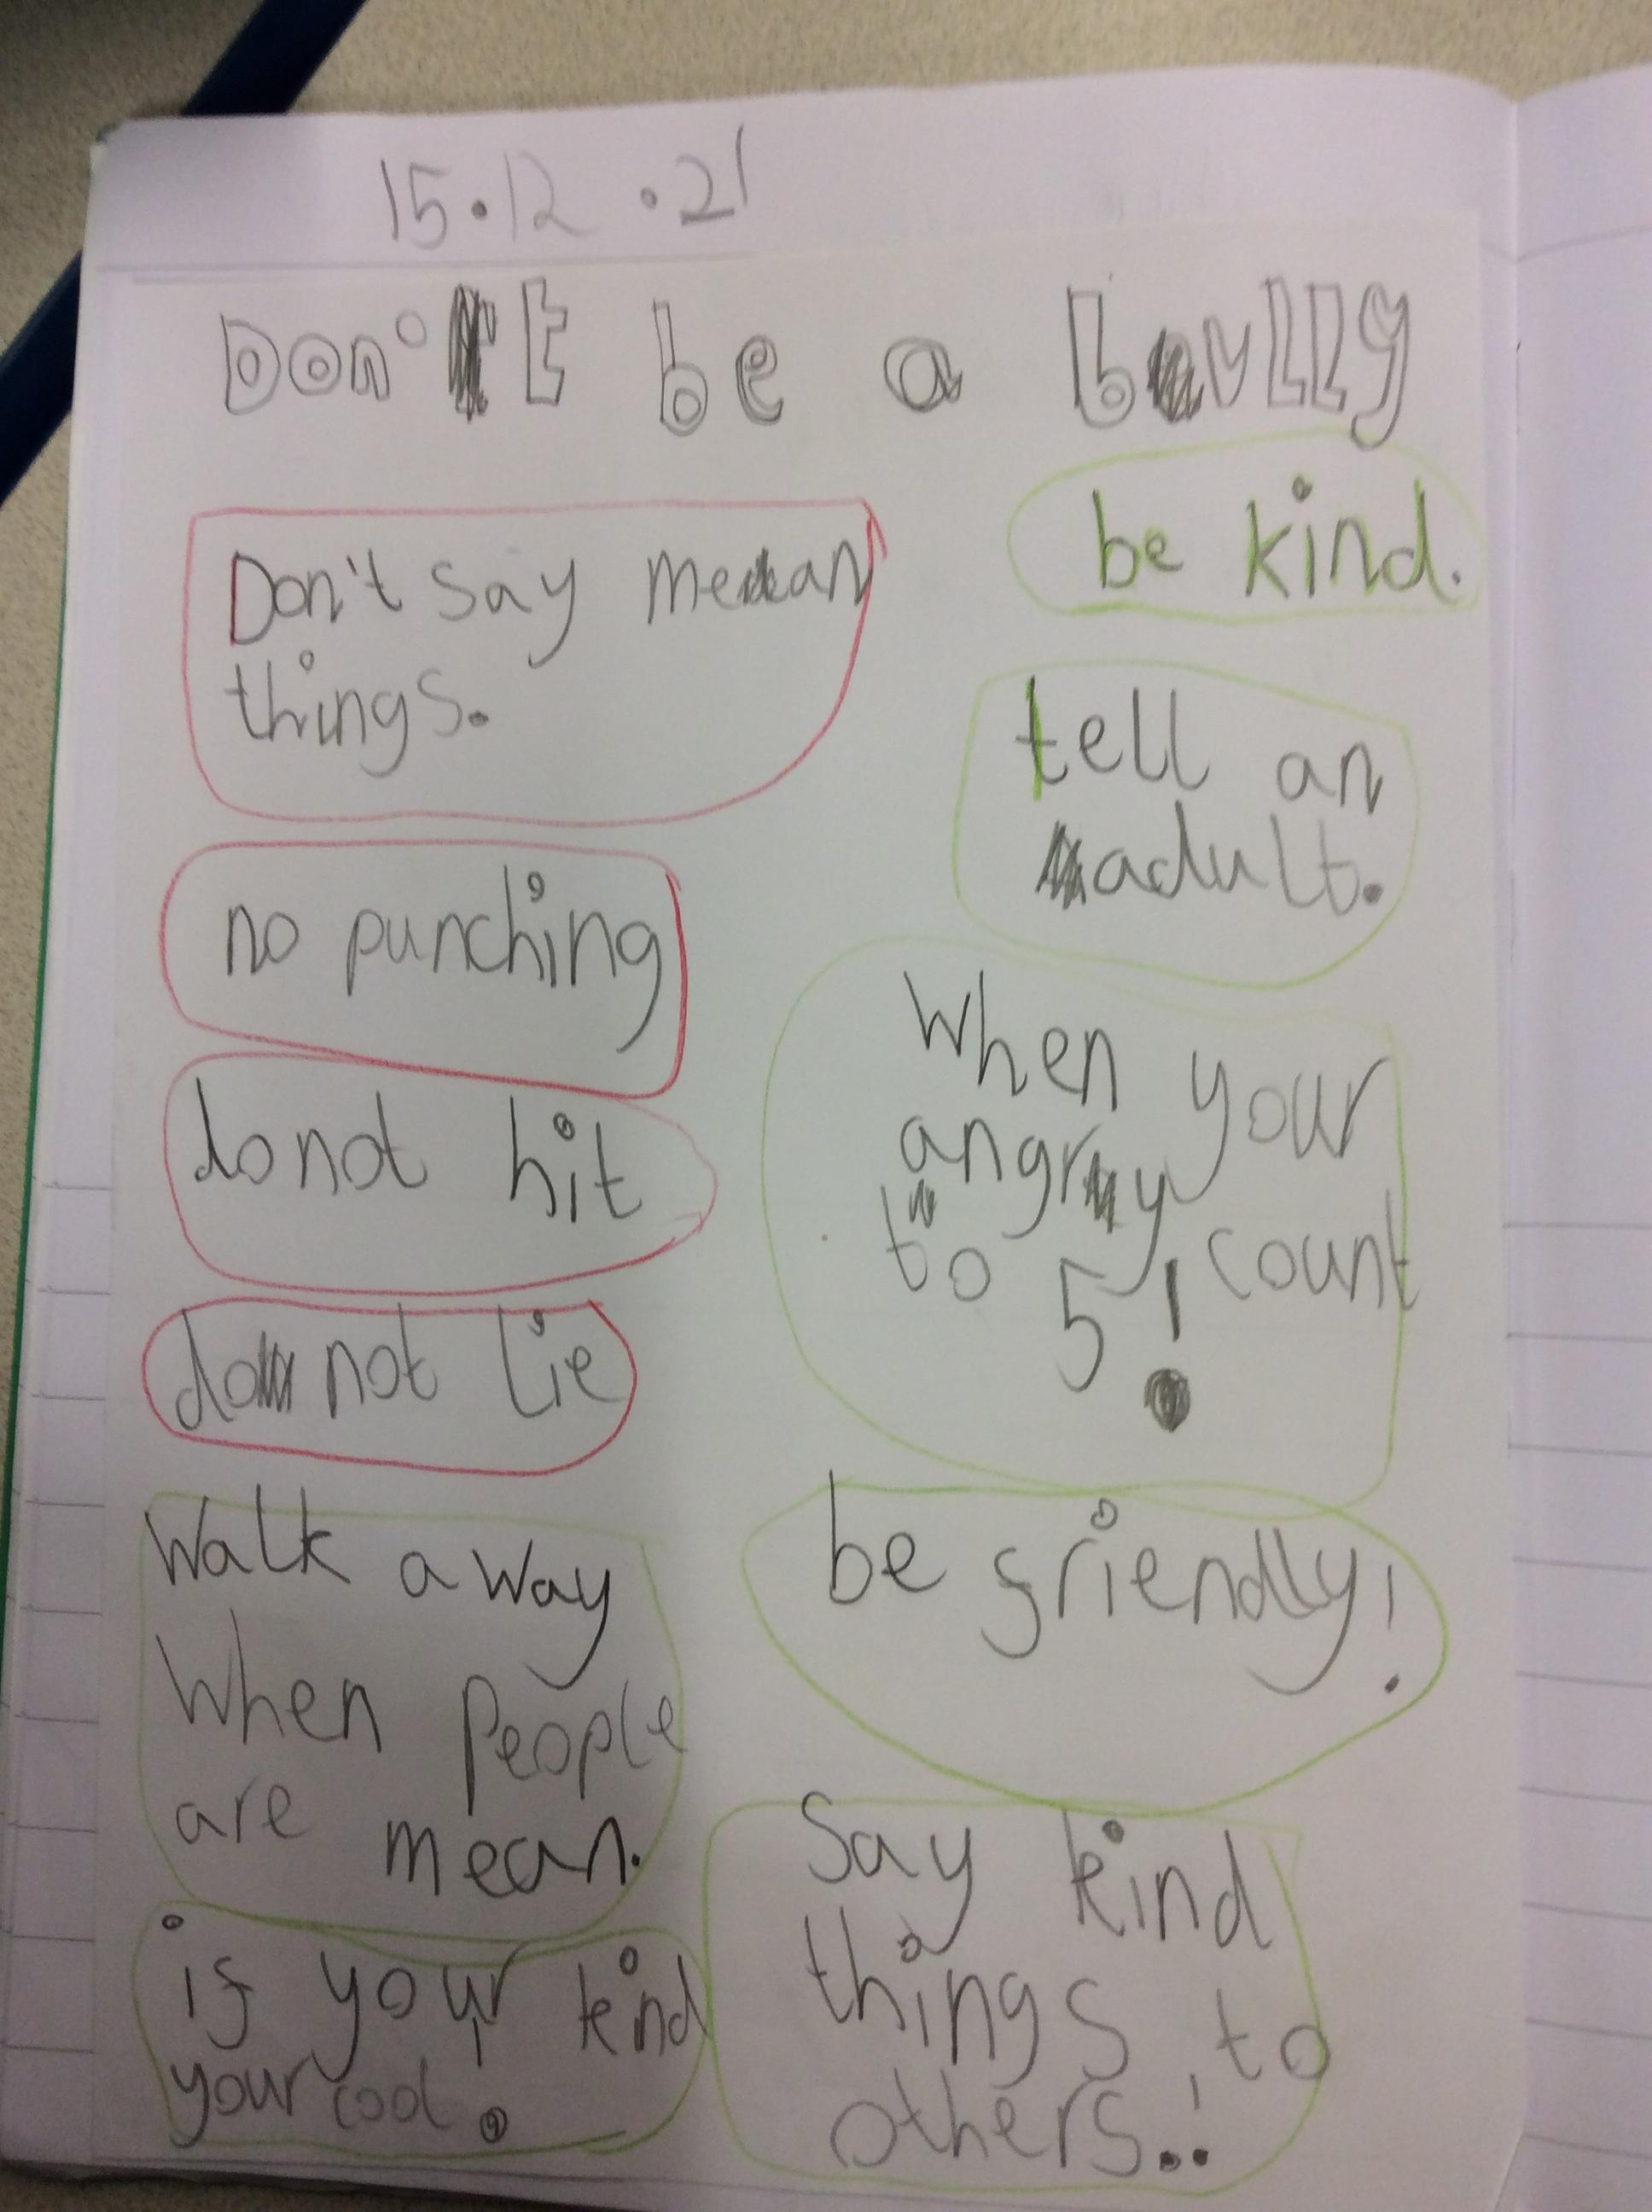 15.12.21
Don't be a bully
Don't say mean
things.
no punching
do not hit
do not lie
Walk away
when people
are mean.
if your kind
your cool.
be kind.
tell an
adult.
When your
angry count
to 5!
be friendly!
Say kind
things to
others.!